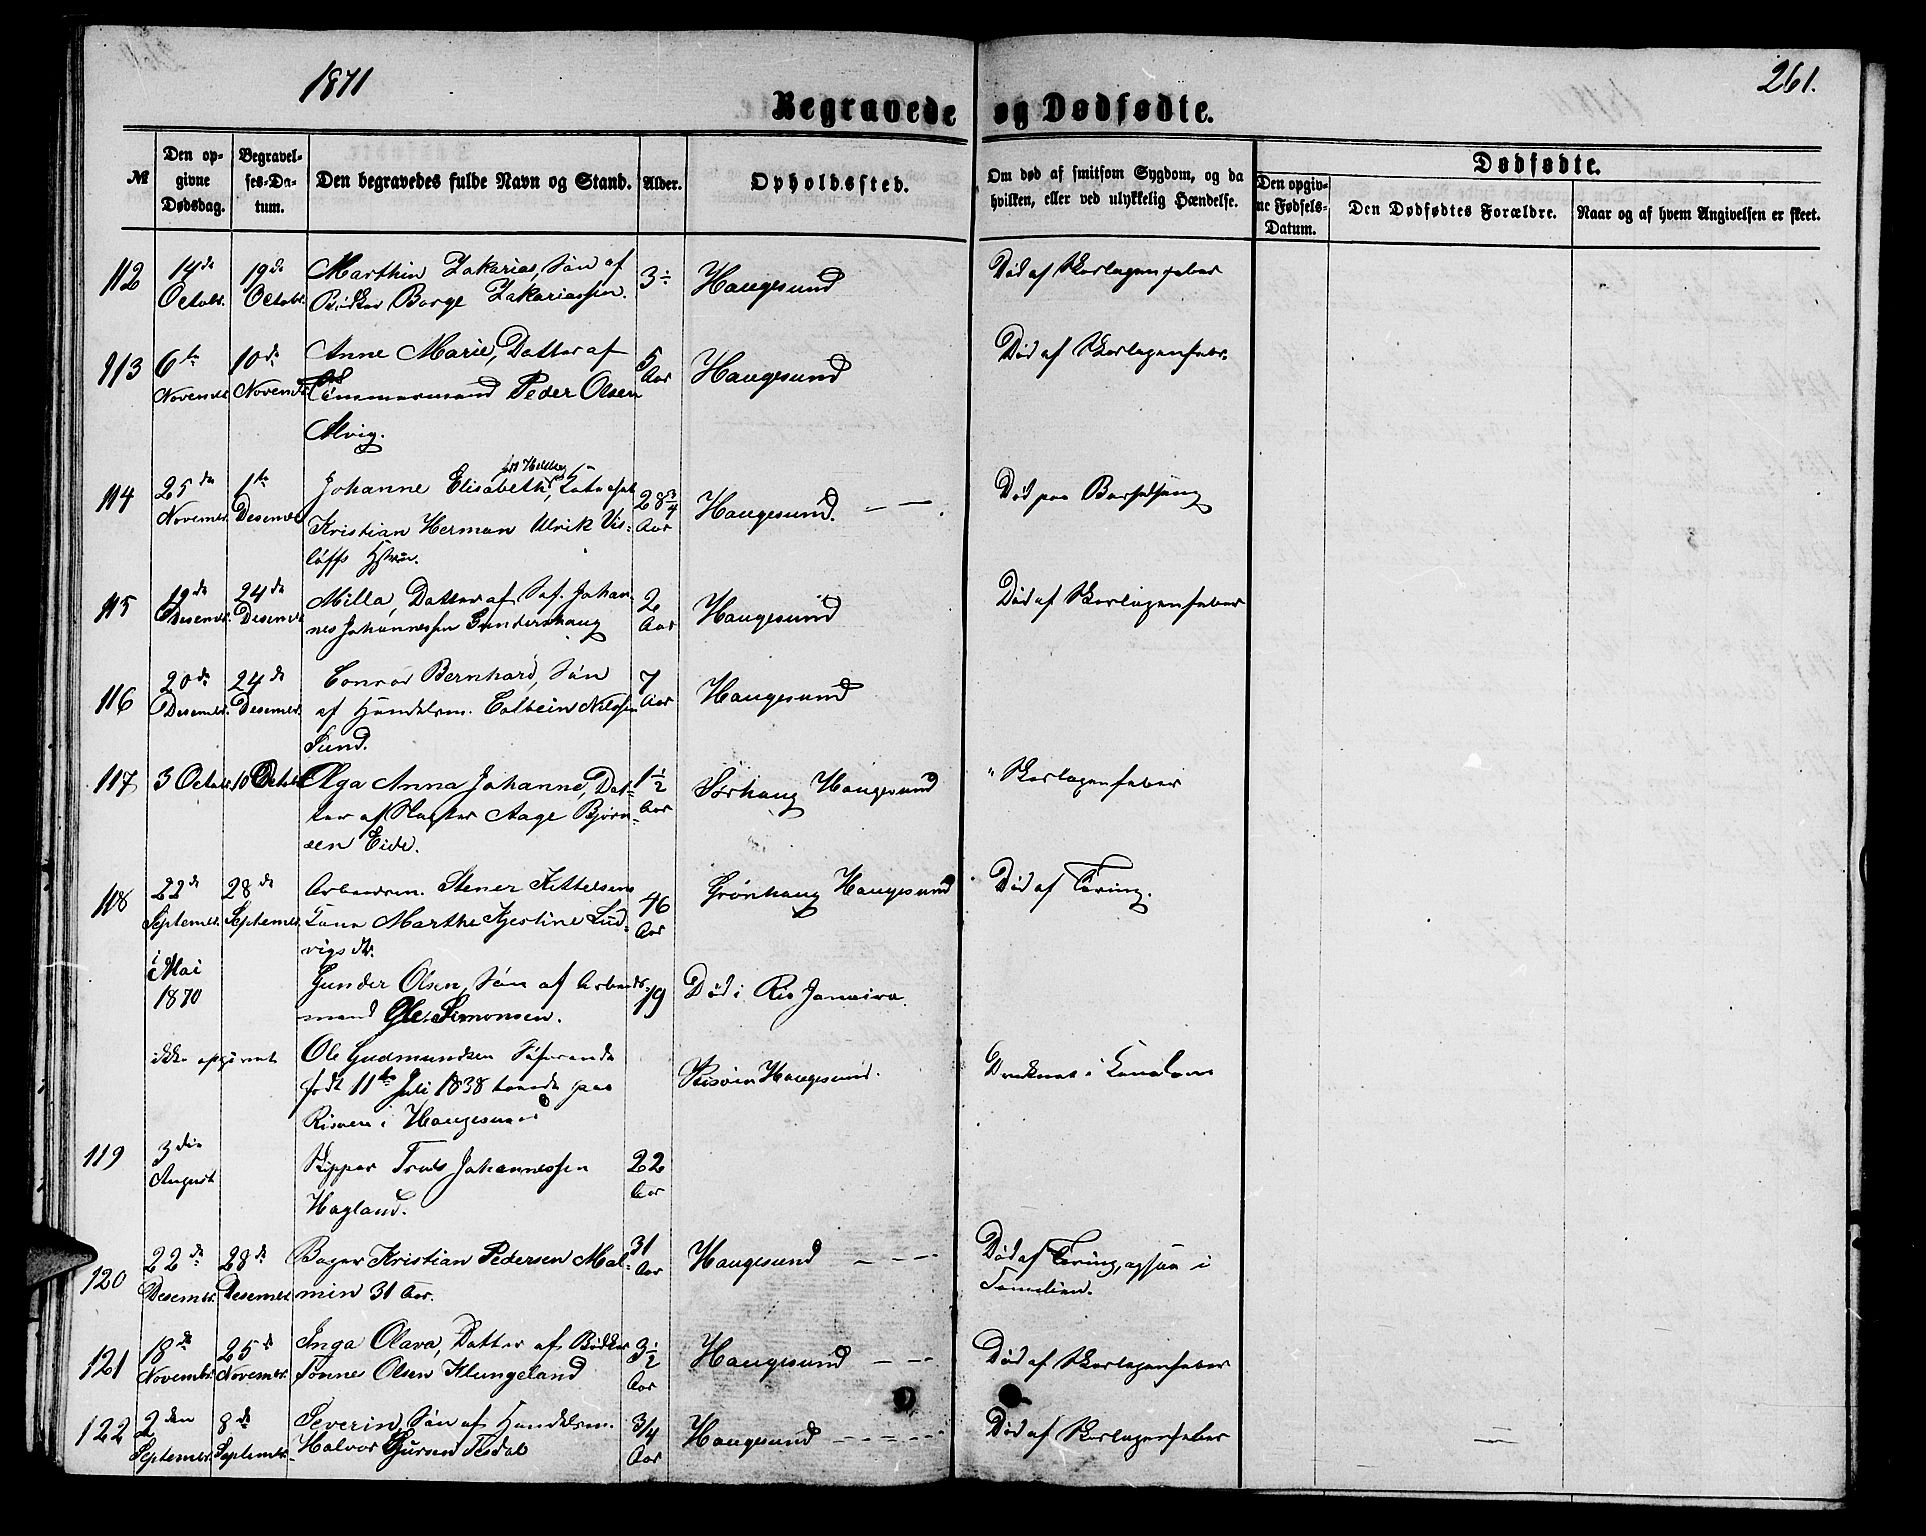 1871
261.
Begravede og Dødfødte.
№
Den opgivne Dødsdag.
Begravelses-Datum.
Den begravedes fulde Navn og Stand.
Alder.
Opholdssted.
Om død af smitsom Sygdom, og da hvilken, eller ved ulykkelig Hændelse.
Dødfødte.
Den opgivne Fødsels-Datum.
Den Dødfødtes Forældre.
Naar og af hvem Angivelsen er skeet.
112 14de 19de Marthin Zakarias, Søn af 3 Haugesund Død af Skarlagensfeber
Octobr. Octobr. Bødker Borge Zakariassen.
113 6te 10de Anne Marie, Datter af 5 Haugesund Død af Skarlagensfebr.
Novembr. Novembr. Tømmermand Peder Olsen Aar
Alvig.
114 25de 1te Johanne Elisabeth, 28 3/4 Haugesund. Død paa Barselseng
Novembr. Desembr. Kristian Herman Ulrik Vis- Aar
løffs Hustru.
115 19de 24de Milla, Datter af Søf. Johan- 2 Haugesund Død af Skarlagensfeber
Desembr. Desembr. nes Johannessen Gundershaug Aar
116 20de 24de Conrad Bernhard, Søn 7 Haugesund
Desembr. Desembr. af Handelsm. Colbein Nilssen Aar
Sund.
117 3 Octobr. 10 Octobr. Olga Anna Johanne, Dat- 1 1/2 Sørhaug Haugesund " Skarlagensfeber
ter af Slagter Aage Bjørn- Aar
sen Eide.
118 22de 28de Arbeidsm. Stener Kittelsens 46 Grønhaug Haugesund Død af Tæring.
Septembr. Septembr. Kone Marthe Kjestine Lud- Aar
vigsdtr.
i Mai Gunder Olsen, Søn af Arbeids- 19 Død i Rio Janeiro.
1870 mand Ole Simonsen.
ikke opgivet Ole Gudmundsen Søfarende Risøen Haugesund. Druknet i
født 11te Juli 1838 boende paa
Risøen i Haugesund
119 3die Skipper Truls Johannessen 22
August Hagland. Aar
120 22de 28de Bager Kristian Pedersen Mal- 31 Haugesund Død af Tæring, ogsaa i
Desembr. Desembr. min 31 Aar. Aar Familien.
121 18de 25de Inga Olava, Datter af Bødker 3 1/2 Haugesund Død af Skarlagensfeber
Novembr. Novembr. Tønnes Olsen Klungeland Aar
122 2den 8de Severin, Søn af Handelsm. 3/4 Haugesund Død af Skarlagensfeber
Septembr. Septembr. Halvor Tesdal Aar